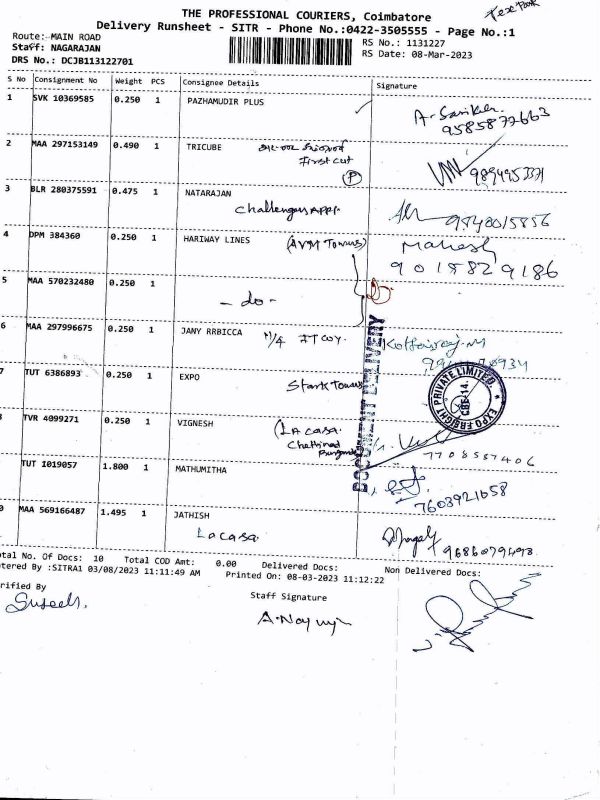 THE PROFESSIONAL COURIERS, Coimbatore
Delivery Runsheet - SITR - Phone No.:0422-3505555 - Page No.:1
Route: MAIN ROAD
RS No.: 1131227
Staff: NAGARAJAN
RS Date: 08-Mar-2023
DRS No.: DCJB113122701
S No Consignment No Weight PCS Consignee Details Signature
1 SVK 10369585 0.250 1 PAZHAMUDIR PLUS
9585877663
2 MAA 297153149 0.490 1 TRICUBE
First cut
P
3 BLR 280375591 0.475 1 NATARAJAN
9840015856
4 DPM 384360 0.250 1 HARIWAY LINES (AVM Towers)
Mahesh
9015829186
5 MAA 570232480 0.250 1
- do -
6 MAA 297996675 0.250 1 JANY RRBICCA
7 TUT 6386893 0.250 1 EXPO
Stark Towers
DOCUMENT DELIVERY
EXPO FREIGHT PRIVATE LIMITED.
CBE-14.
TVR 4099271 0.250 1 VIGNESH
(La casa.
Chettinad
7708587406
TUT 1019057 1.800 1 MATHUMITHA
7603921058
0 MAA 569166487 1.495 1 JATHISH
Lacasa.
otal No. of Docs: 10 Total COD Amt: 0.00 Delivered Docs: Non Delivered Docs:
tered By :SITRA1 03/08/2023 11:11:49 AM Printed On: 08-03-2023 11:12:22
rified By
Staff Signature